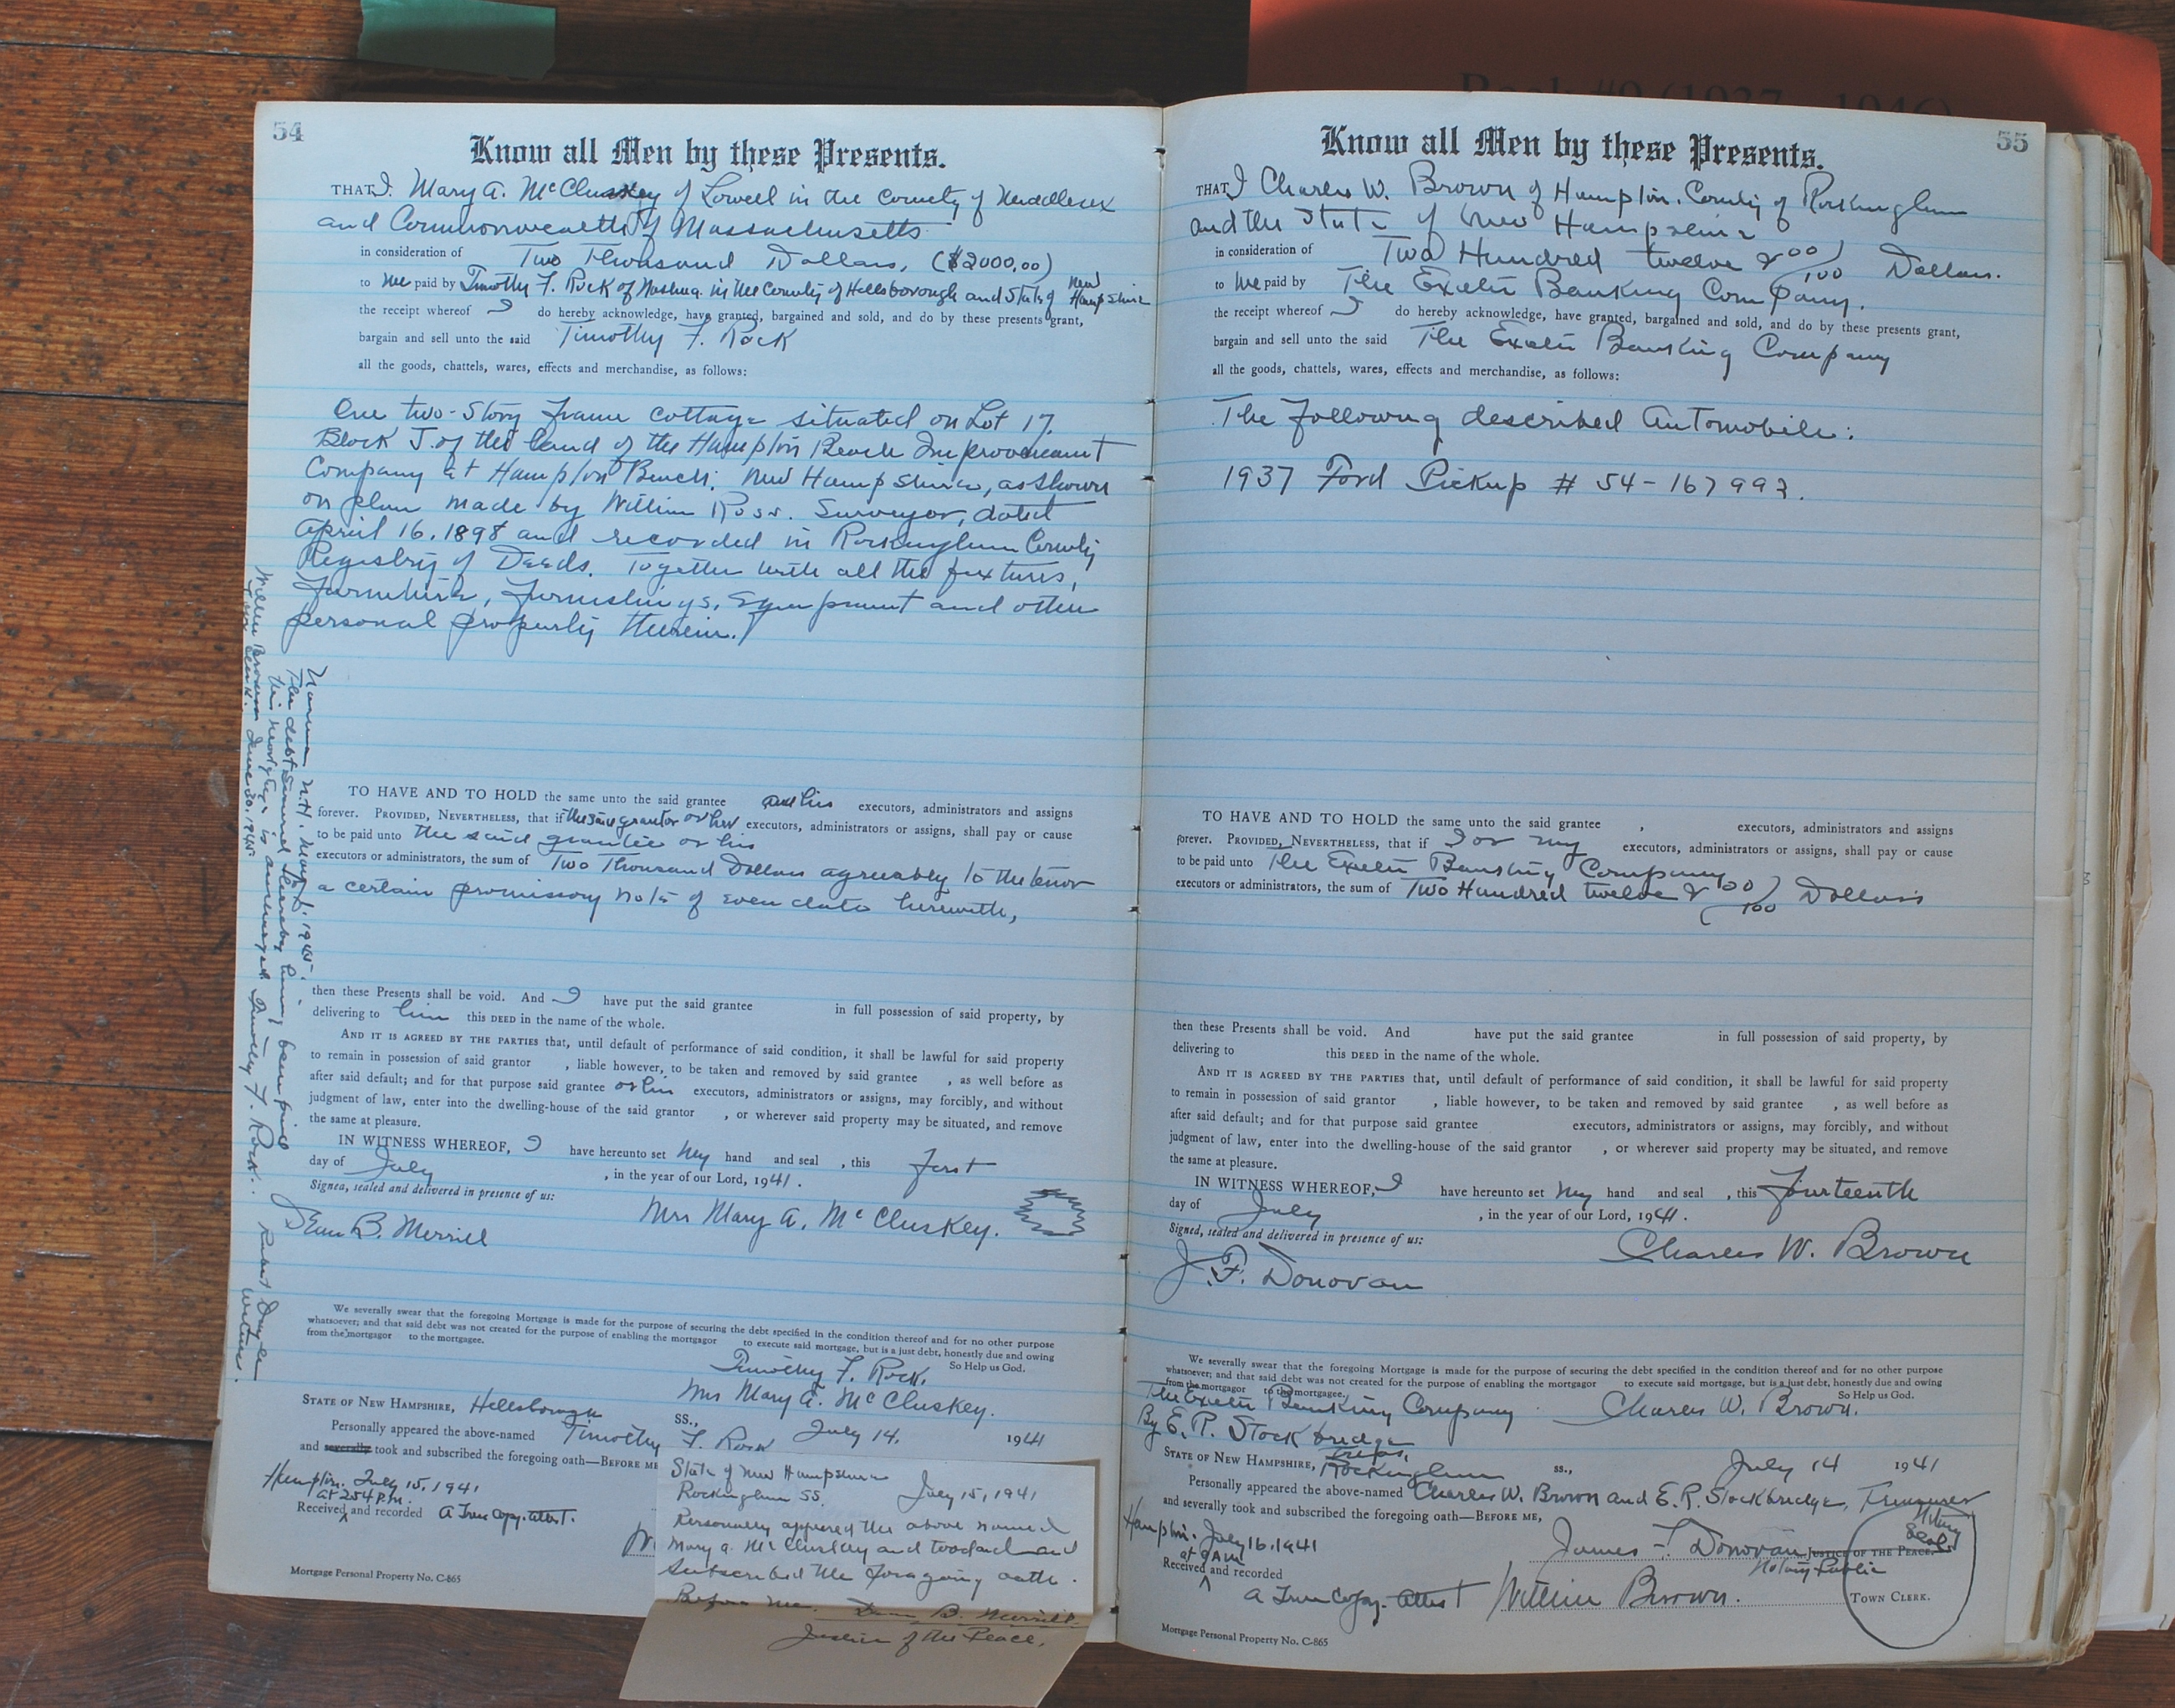 Book #9 (1937 - 1946)
54
Know all Men by these Presents.
THAT I. Mary A. McCluskey of Lowell in the County of Middlesex
and Commonwealth of Massachusetts
in consideration of Two Thousand Dollars, ($2000.00)
to me paid by Timothy F. Rock of Nashua. in the County of Hillsborough and State of New Hampshire
the receipt whereof I do hereby acknowledge, have granted, bargained and sold, and do by these presents grant,
bargain and sell unto the said Timothy F. Rock
all the goods, chattels, wares, effects and merchandise, as follows:
One two-story frame cottage situated on Lot 17.
Block J. of the land of the Hampton Beach Improvement
Company at Hampton Beach; New Hampshire, as shown
on plan made by William Ross. Surveyor, dated
April 16, 1898 and recorded in Rockingham County
Registry of Deeds. Together with all the fixtures,
furniture, furnishings, equipment and other
personal property therein.
TO HAVE AND TO HOLD the same unto the said grantee and his executors, administrators and assigns
forever. PROVIDED, NEVERTHELESS, that if the said grantor or her executors, administrators or assigns, shall pay or cause
to be paid unto the said grantee or his
executors or administrators, the sum of Two Thousand Dollars agreeably to the tenor
a certain promissory note of even date herewith,
then these Presents shall be void. And I have put the said grantee in full possession of said property, by
delivering to him this DEED in the name of the whole.
AND IT IS AGREED BY THE PARTIES that, until default of performance of said condition, it shall be lawful for said property
to remain in possession of said grantor , liable however, to be taken and removed by said grantee , as well before as
after said default; and for that purpose said grantee or his executors, administrators or assigns, may forcibly, and without
judgment of law, enter into the dwelling-house of the said grantor , or wherever said property may be situated, and remove
the same at pleasure.
IN WITNESS WHEREOF, I have hereunto set my hand and seal , this first
day of July , in the year of our Lord, 1941.
Signed, sealed and delivered in presence of us:
Mrs Mary A. McCluskey.
Dean B. Merrill
We severally swear that the foregoing Mortgage is made for the purpose of securing the debt specified in the condition thereof and for no other purpose
whatsoever; and that said debt was not created for the purpose of enabling the mortgagor to execute said mortgage, but is a just debt, honestly due and owing
from the mortgagor to the mortgagee. So Help us God.
Timothy F. Rock.
Mrs Mary A. McCluskey.
STATE OF NEW HAMPSHIRE, Hillsborough ss., July 14, 1941
Personally appeared the above-named Timothy F. Rock
and severally took and subscribed the foregoing oath—BEFORE ME
Hampton. July 15, 1941
at 2:54 P.M.
Received and recorded A True Copy. Attest.
Mortgage Personal Property No. C-865
State of New Hampshire
Rockingham SS. July 15, 1941
Personally appeared the above named
Mary A. McCluskey and took and
subscribed the foregoing oath.
Before me. Dean B. Merrill.
Justice of the Peace.
Nashua N.H. May 1. 1945.
The debt secured hereby having been paid
this mortgage is discharged Timothy F. Rock.
William Brown Town Clerk. June 30, 1945
Witness.
55
Know all Men by these Presents.
THAT I Charles W. Brown of Hampton. County of Rockingham
and the State of New Hampshire
in consideration of Two Hundred twelve & 00/100 Dollars.
to me paid by The Exeter Banking Company.
the receipt whereof I do hereby acknowledge, have granted, bargained and sold, and do by these presents grant,
bargain and sell unto the said The Exeter Banking Company
all the goods, chattels, wares, effects and merchandise, as follows:
The following described Automobile:
1937 Ford Pickup # 54-167993.
TO HAVE AND TO HOLD the same unto the said grantee , executors, administrators and assigns
forever. PROVIDED, NEVERTHELESS, that if I or my executors, administrators or assigns, shall pay or cause
to be paid unto The Exeter Banking Company
executors or administrators, the sum of Two Hundred twelve & 00/100 Dollars
then these Presents shall be void. And have put the said grantee in full possession of said property, by
delivering to this DEED in the name of the whole.
AND IT IS AGREED BY THE PARTIES that, until default of performance of said condition, it shall be lawful for said property
to remain in possession of said grantor , liable however, to be taken and removed by said grantee , as well before as
after said default; and for that purpose said grantee executors, administrators or assigns, may forcibly, and without
judgment of law, enter into the dwelling-house of the said grantor , or wherever said property may be situated, and remove
the same at pleasure.
IN WITNESS WHEREOF, I have hereunto set my hand and seal , this fourteenth
day of July , in the year of our Lord, 1941.
Signed, sealed and delivered in presence of us:
Charles W. Brown
J. F. Donovan
We severally swear that the foregoing Mortgage is made for the purpose of securing the debt specified in the condition thereof and for no other purpose
whatsoever; and that said debt was not created for the purpose of enabling the mortgagor to execute said mortgage, but is a just debt, honestly due and owing
from the mortgagor to the mortgagee. So Help us God.
The Exeter Banking Company Charles W. Brown.
By E. R. Stockbridge
Treas.
STATE OF NEW HAMPSHIRE, Rockingham ss., July 14 1941
Personally appeared the above-named Charles W. Brown and E. R. Stockbridge, Treasurer
and severally took and subscribed the foregoing oath—BEFORE ME,
Notary Seal
James F. Donovan JUSTICE OF THE PEACE.
Notary Public
Hampton. July 16. 1941
at 9 AM
Received and recorded
A True Copy. Attest William Brown. TOWN CLERK.
Mortgage Personal Property No. C-865